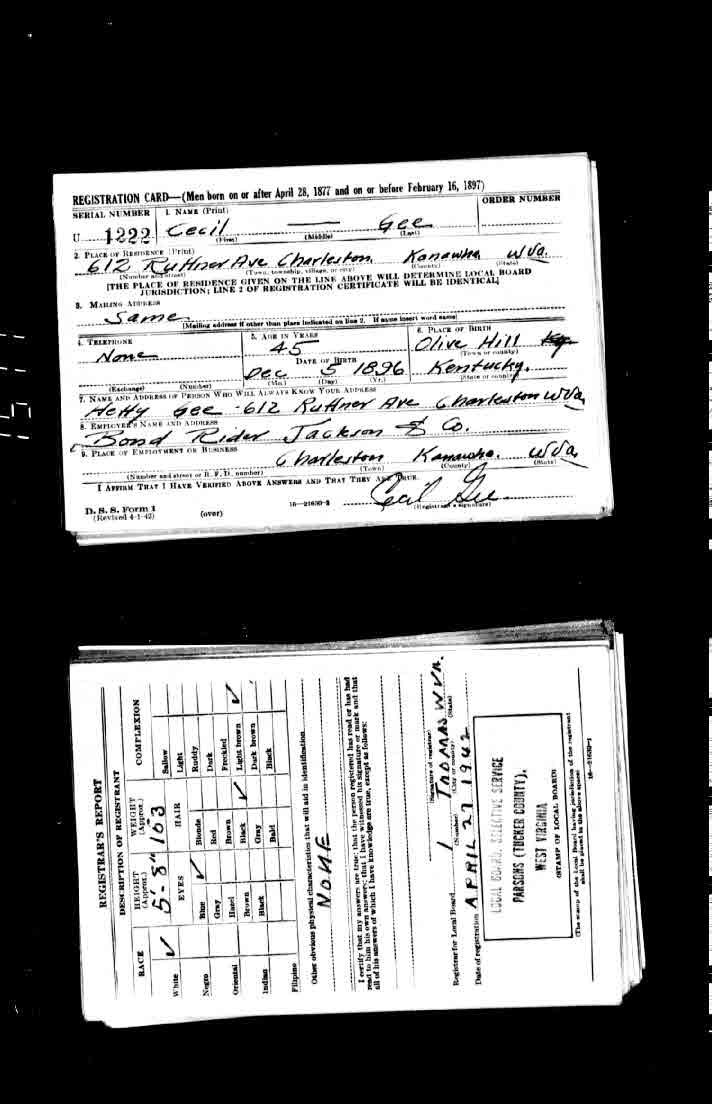 REGISTRATION CARD—(Men born on or after April 28, 1877 and on or before February 16, 1897)
SERIAL NUMBER
1. NAME (Print)
ORDER NUMBER
U 1222
Cecil — Gee
(First) (Middle) (Last)
2. PLACE OF RESIDENCE (Print)
612 Ruffner Ave Charleston Kanawha W Va.
(Number and street) (Town, township, village, or city) (County) (State)
[THE PLACE OF RESIDENCE GIVEN ON THE LINE ABOVE WILL DETERMINE LOCAL BOARD
JURISDICTION; LINE 2 OF REGISTRATION CERTIFICATE WILL BE IDENTICAL]
3. MAILING ADDRESS
Same
[Mailing address if other than place indicated on line 2. If same insert word same]
4. TELEPHONE
None
(Exchange) (Number)
5. AGE IN YEARS
45
DATE OF BIRTH
Dec 5 1896
(Mo.) (Day) (Yr.)
6. PLACE OF BIRTH
Olive Hill Ky
(Town or county)
Kentucky.
(State or country)
7. NAME AND ADDRESS OF PERSON WHO WILL ALWAYS KNOW YOUR ADDRESS
Hetty Gee - 612 Ruffner Ave Charleston W Va,
8. EMPLOYER'S NAME AND ADDRESS
Bond Rider Jackson & Co.
9. PLACE OF EMPLOYMENT OR BUSINESS
Charleston Kanawha. W Va,
(Number and street or R. F. D. number) (Town) (County) (State)
I AFFIRM THAT I HAVE VERIFIED ABOVE ANSWERS AND THAT THEY ARE TRUE.
D. S. S. Form 1
(Revised 4-1-42)
(over)
16—21630-2
Cecil Gee
(Registrant's signature)
REGISTRAR'S REPORT
DESCRIPTION OF REGISTRANT
RACE
HEIGHT
(Approx.)
WEIGHT
(Approx.)
COMPLEXION
5-8" 163
White ✓
Negro
Oriental
Indian
Filipino
EYES
Blue ✓
Gray
Hazel
Brown
Black
HAIR
Blonde
Red
Brown
Black ✓
Gray
Bald
Sallow
Light
Ruddy
Dark
Freckled
Light brown ✓
Dark brown
Black
Other obvious physical characteristics that will aid in identification
NONE
I certify that my answers are true; that the person registered has read or has had
read to him his own answers; that I have witnessed his signature or mark and that
all of his answers of which I have knowledge are true, except as follows:
(Signature of registrar)
Registrar for Local Board 1 THOMAS W VA.
(Number) (City or county) (State)
Date of registration APRIL 27 1942
LOCAL BOARD, SELECTIVE SERVICE
PARSONS (TUCKER COUNTY),
WEST VIRGINIA
(STAMP OF LOCAL BOARD)
(The stamp of the Local Board having jurisdiction of the registrant
shall be placed in the above space)
16—21630-1